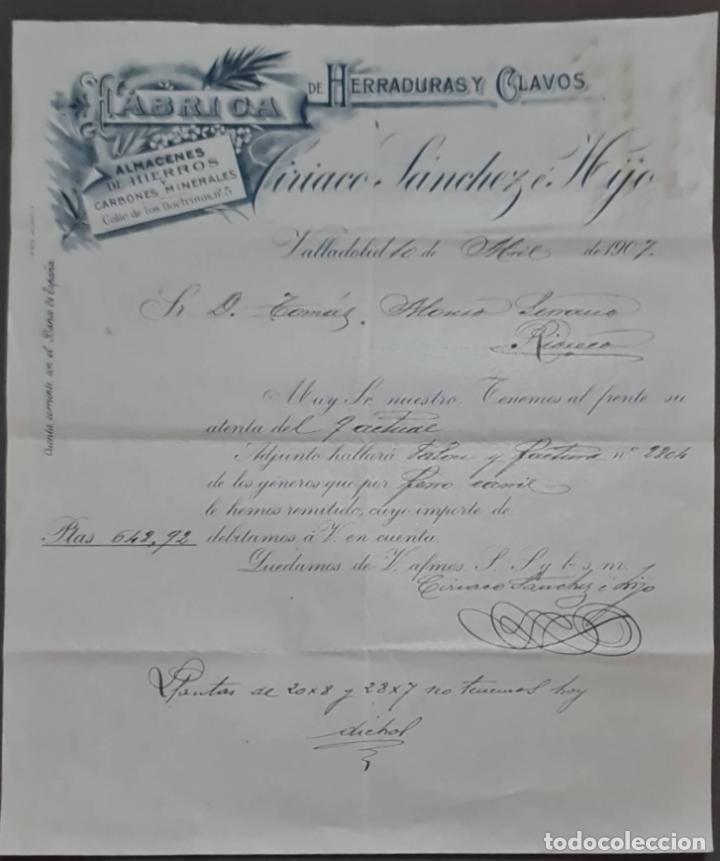 FÁBRICA DE HERRADURAS Y CLAVOS
ALMACENES
DE HIERROS
Y
CARBONES MINERALES
Calle de los Doctrinos, nº 5
Ciriaco Sánchez é Hijo
Valladolid 10 de Abril de 1907.
Sr D. Tomás Alonso Serrano
Rioseco
Cuenta corriente con el Banco de España
Muy Sr. nuestro: Tenemos al frente su
atenta del 9 actual
Adjunto hallará Talon y factura nº 2204
de los géneros que por ferro carril
le hemos remitido, cuyo importe de
Ptas 642,92 debitamos á V. en cuenta.
Quedamos de V. afmos. S. S. q b. s. m.
Ciriaco Sanchez é hijo
de 20x8 y 28x7 no tenemos hoy
dichos
todocoleccion